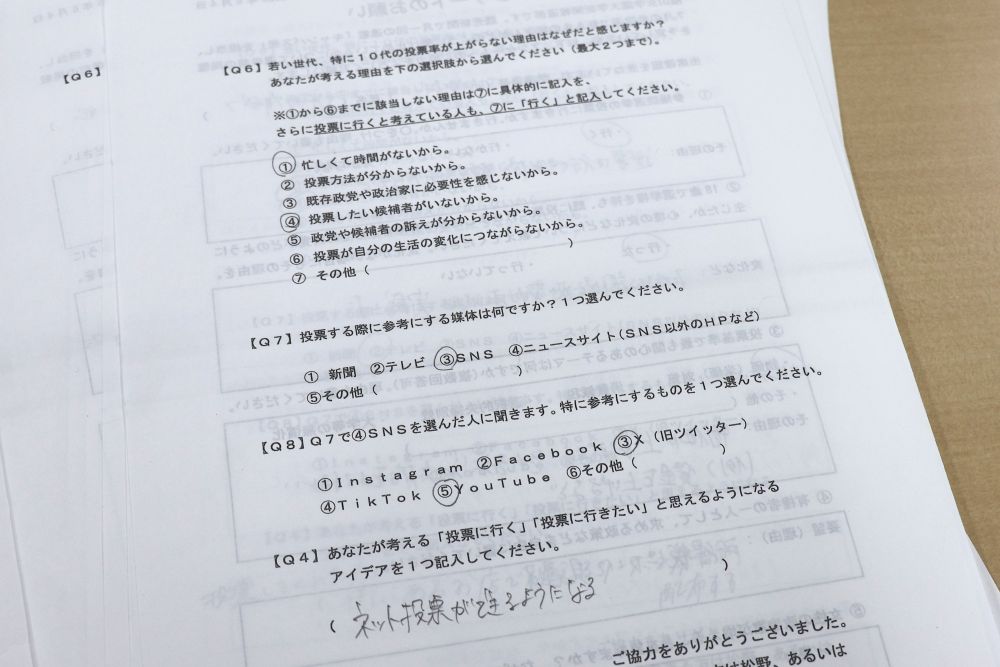 【Q6】
【Q6】若い世代、特に10代の投票率が上がらない理由はなぜだと感じますか?
あなたが考える理由を下の選択肢から選んでください(最大2つまで)。
※①から⑥までに該当しない理由は⑦に具体的に記入を、
さらに投票に行くと考えている人も、⑦に「行く」と記入してください。
① 忙しくて時間がないから。
② 投票方法が分からないから。
③ 既存政党や政治家に必要性を感じないから。
④ 投票したい候補者がいないから。
⑤ 政党や候補者の訴えが分からないから。
⑥ 投票が自分の生活の変化につながらないから。
⑦ その他( )
【Q7】投票する際に参考にする媒体は何ですか?1つ選んでください。
① 新聞 ②テレビ ③SNS ④ニュースサイト(SNS以外のHPなど)
⑤その他( )
【Q8】Q7で④SNSを選んだ人に聞きます。特に参考にするものを1つ選んでください。
①Instagram ②Facebook ③X(旧ツイッター)
④TikTok ⑤YouTube ⑥その他( )
【Q4】あなたが考える「投票に行く」「投票に行きたい」と思えるようになる
アイデアを1つ記入してください。
( ネット投票ができるようになる )
ご協力をありがとうございました。
は松野、あるいは